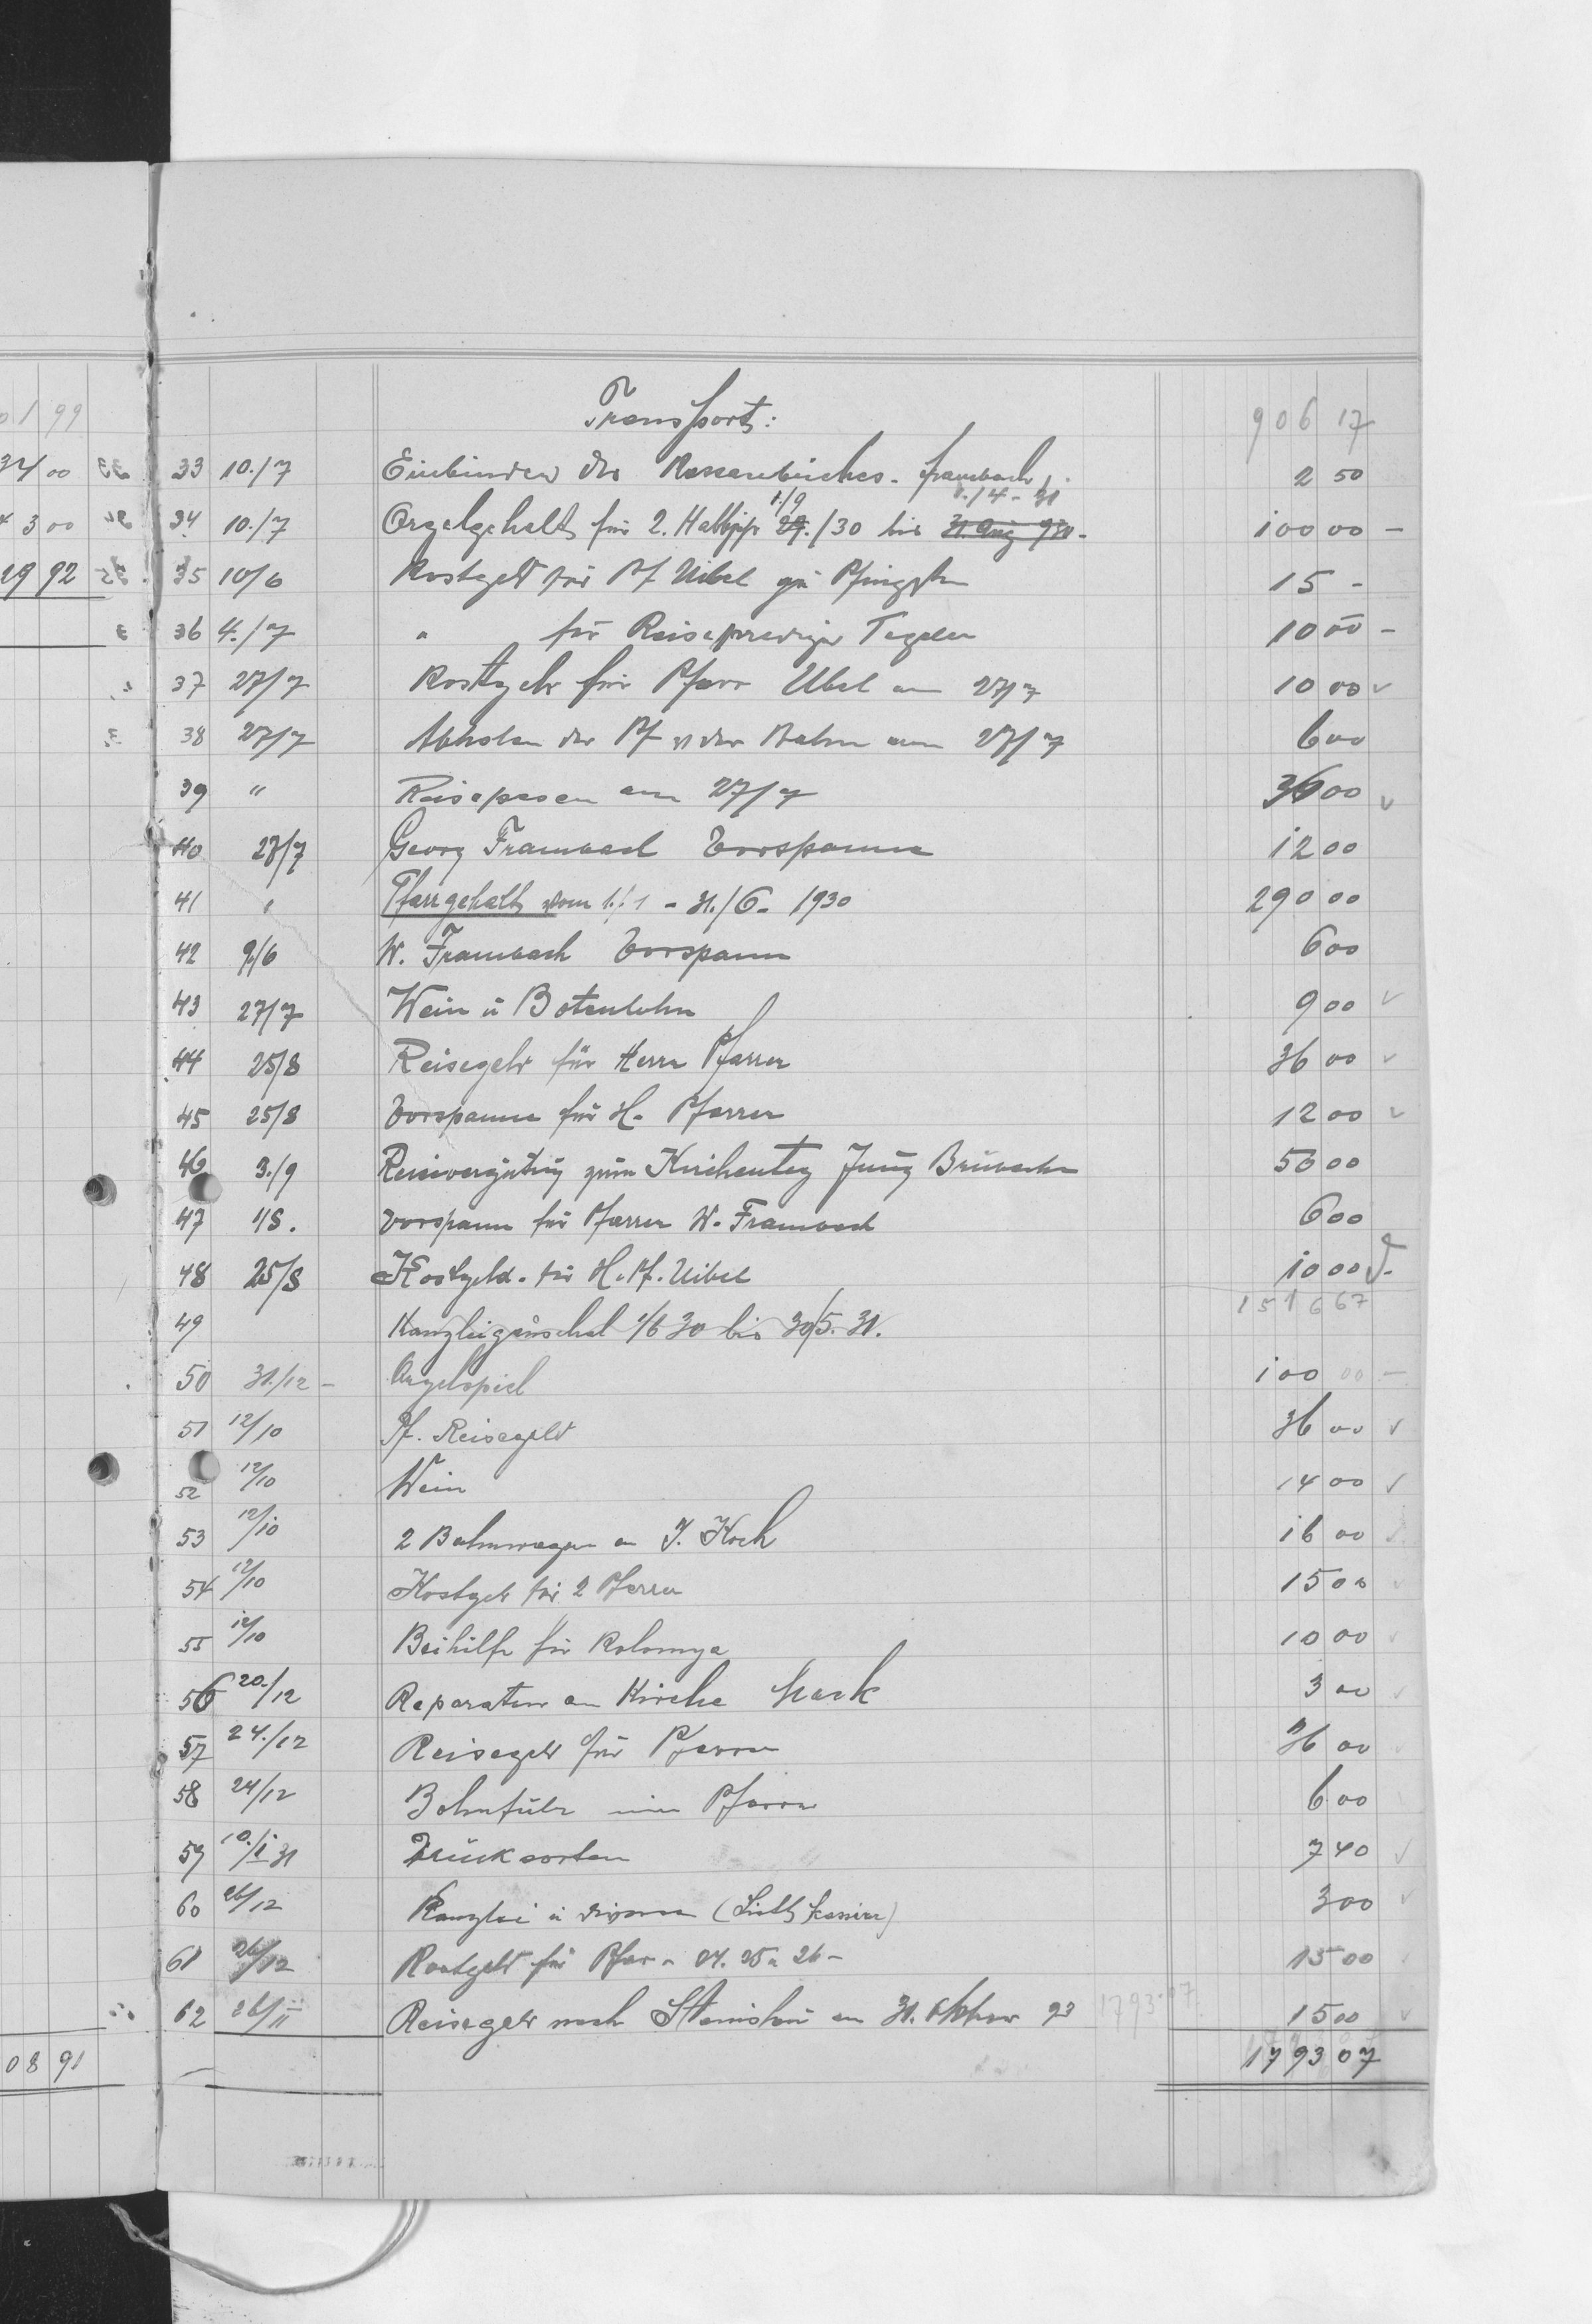 Transport: 906 17
33 10./7 Einbinden des Kassenbuches. Frambach 2 50
1./9 1./4 - 31
34 10./7 Orgelgehalt für 2. Halbjahr 29./30 bis 31. Aug 930 - 100 00 -
35 10/6 Kostgeld für Pf Uibel zu Pfingsten 15 -
36 4./7 " für Reiseprediger Tegeler 10 00 -
37 27/7 Kostgeld für Pfarr Ubel am 27/7 10 00
38 27/7 Abholen der Pf v der Bahn am 27/7 6 00
39 " Reisespesen am 27/7 36 00
40 27/7 Georg Frambach Vorspann 12 00
41 " Pfarrgehalt vom 1./1 - 31./6 - 1930 290 00
42 9/6 W. Frambach Vorspann 6 00
43 27/7 Wein u Botenlohn 9 00
44 25/8 Reisegeld für Herrn Pfarrer 36 00
45 25/8 Vorspann für H. Pfarrer 12 00
46 3./9 Reisevergütung zum Kirchentag Jung 50 00
47 1/8. Vorspann für Pfarrer W. Frambach 6 00
48 25/8 Kostgeld. für H. Pf. Uibel 10 00
1516 67
49 Kanzleipauschal 1/6 30 bis 30/5. 31.
50 31./12 - Orgelspiel 100 00 -
51 12/10 Pf. Reisegeld 36 00
52 12/10 Wein 14 00
53 12/10 2 Bahnwagen an J. Koch 16 00
54 12/10 Kostgeld für 2 Pfarrer 15 00
55 12/10 Beihilfe für Kolomya 10 00
56 20./12 Reparatur an Kirche Mack 3 00
57 24./12 Reisegeld für Pfarrer 36 00
58 24/12 Bahnfuhr Pfarrer 6 00
59 10./1 31 Drucksorten 7 40
60 26/12 Kanzlei u 3 00
61 26/12 Kostgeld für Pfar - 24. 25 u 26 - 15 00
62 26/II Reisegeld nach Stanislau am 31. Oktober 93 1793-07 15 00
1793 07
01 99
3400
4 3 00
29 92
08 91